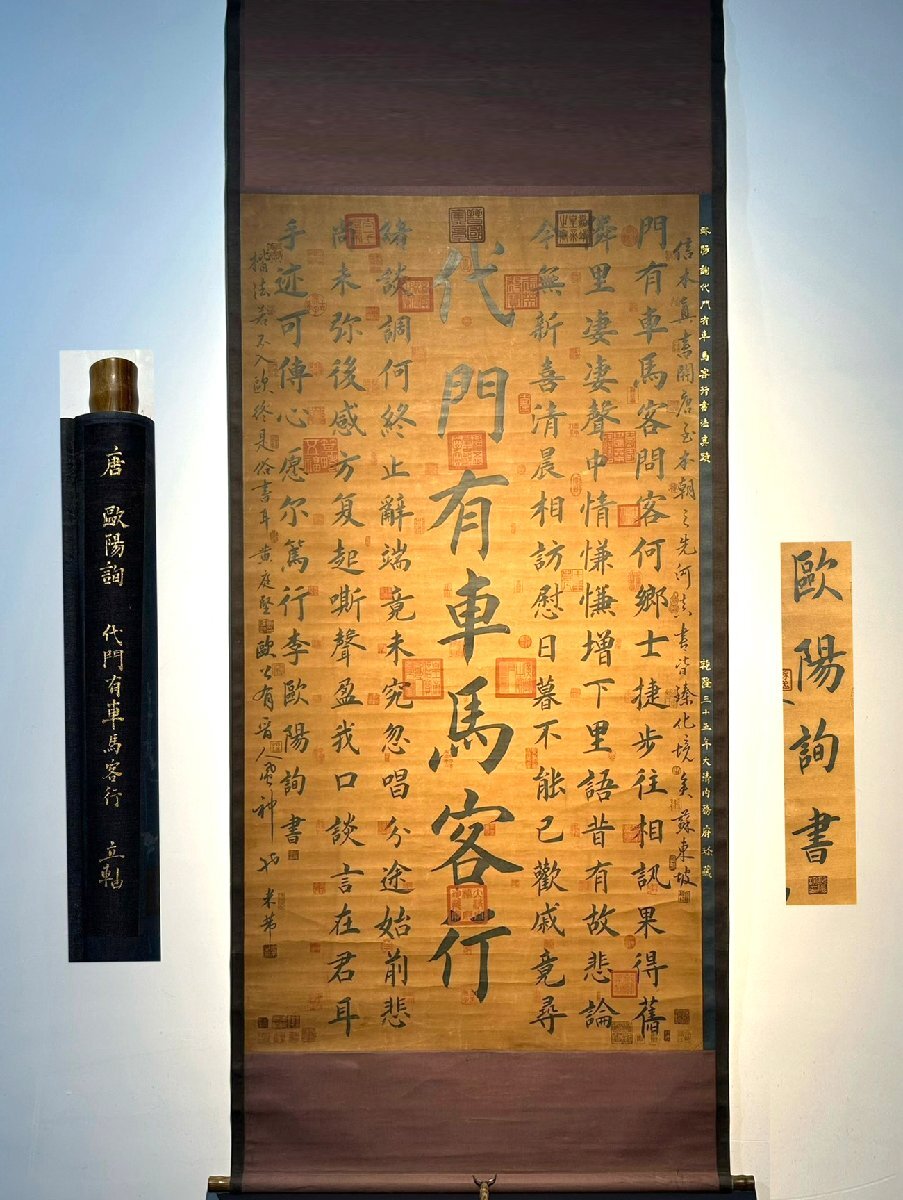 歐陽詢書
歐陽詢代門有車馬客行書法真跡
乾隆三十五年大清内務府珍藏
信本真書開唐至本朝之先河其書皆臻化境矣蘇東坡
門有車馬客問客何鄉士捷步往相訊果得舊
鄰里凄凄聲中情慊慊增下里語昔有故悲論
今無新喜清晨相訪慰日暮不能已歡戚竟尋
代門有車馬客行
緒談調何終止辭端竟未究忽唱分途始前悲
尚未弥後感方复起嘶聲盈我口談言在君耳
手迹可傳心愿尔篤行李歐陽詢書
楷法若不入歐終是俗書耳黄庭堅
歐公有晋人風神也米芾
唐 歐陽詢 代門有車馬客行 立軸